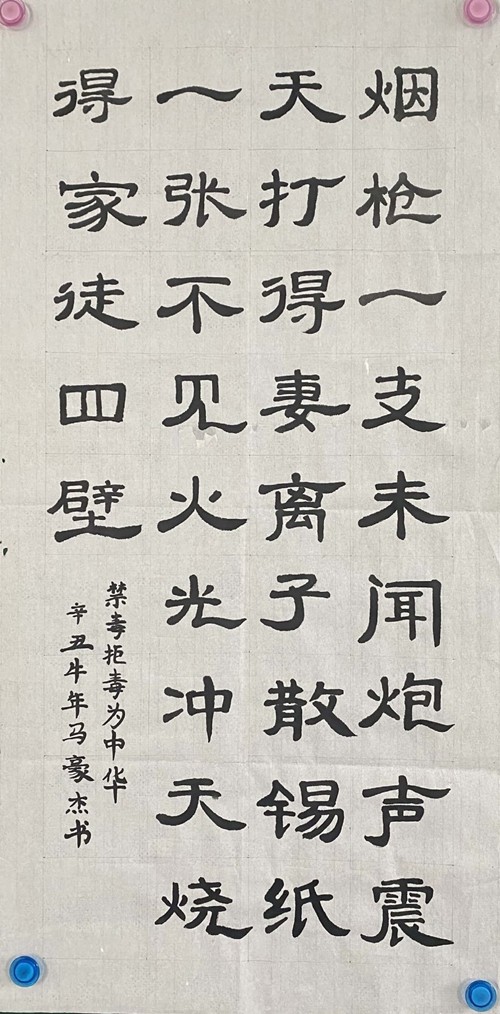 烟枪一支未闻炮声震
天打得妻离子散锡纸
一张不见火光冲天烧
得家徒四壁
禁毒拒毒为中华
辛丑牛年马豪杰书